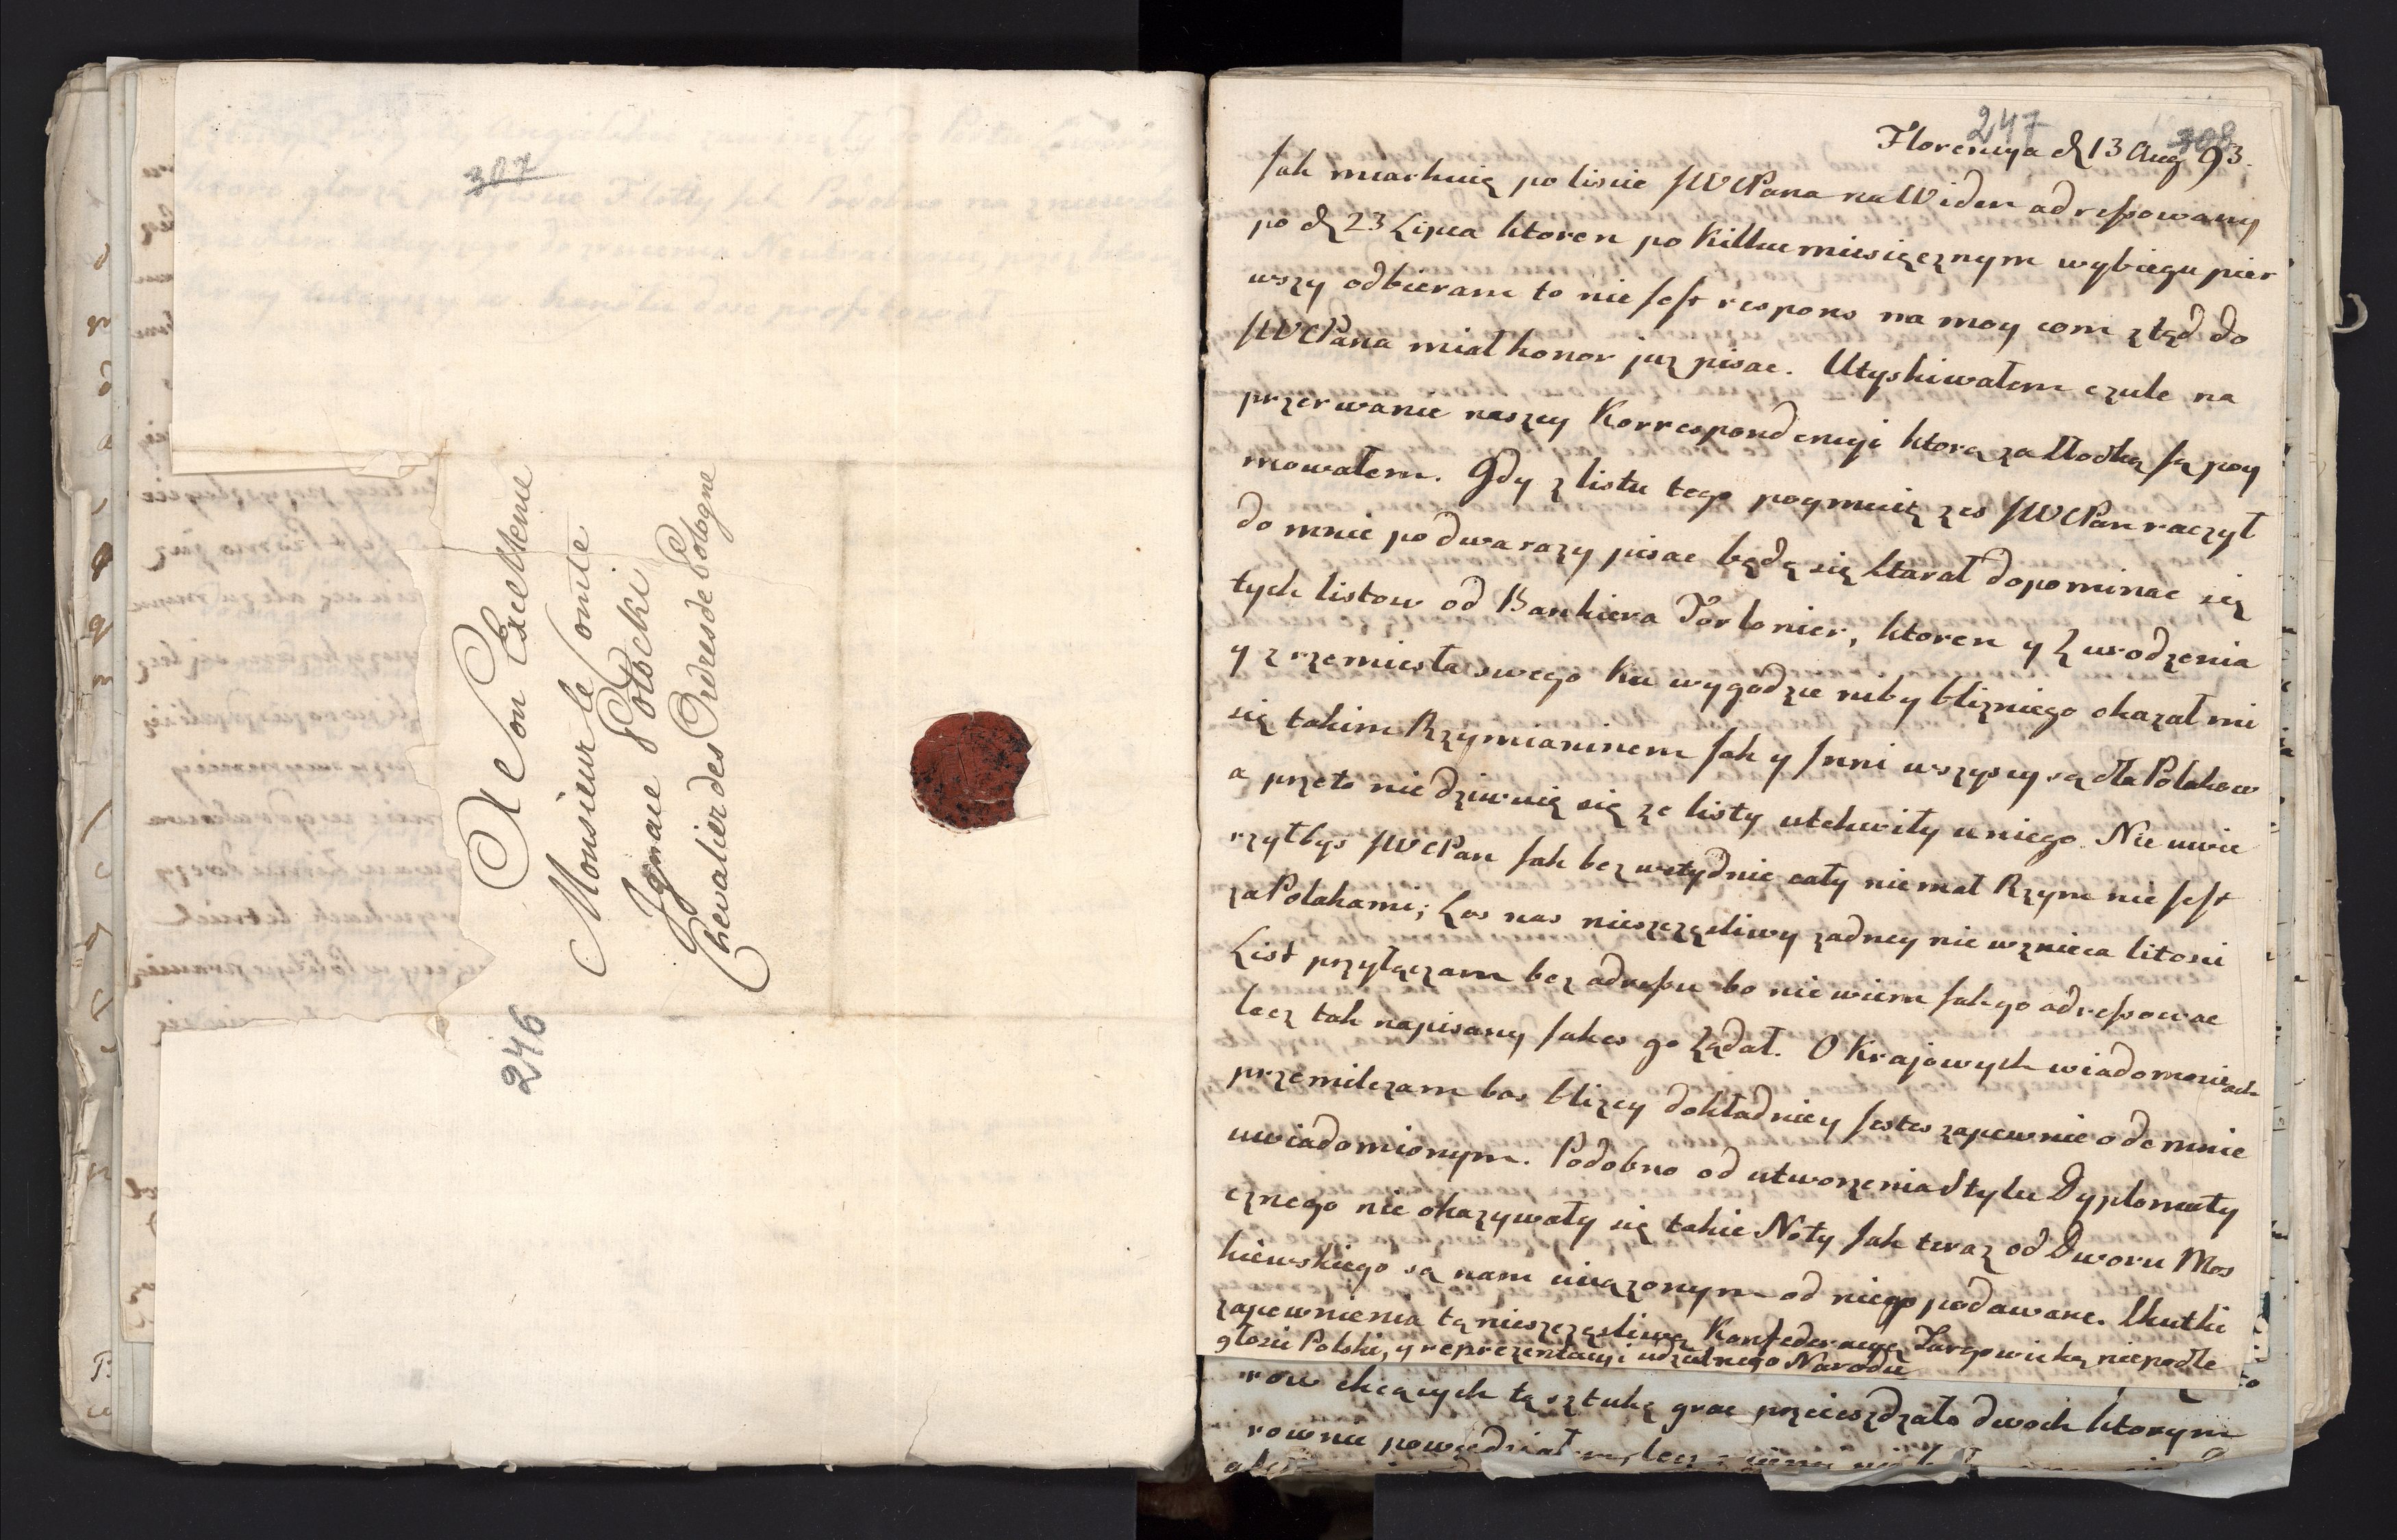 307
A Son Excellence
Monsieur le Comte
Ignace Potocki
Chevalier des Ordres de Pologne
246
247
308
Florencya d 13 Aug 93.
Jak miarkuię po liscie JWCPana na Widen adressowany
po d 23 Lipca ktoren po Killkumiesięcznym wybiegu pier
wszy odbieram to nie jest respons na moy com ztąd do
JWCPana miał honor juz pisac. Utyskiwałem czule na
przerwanie naszey Korrespondencyi ktorą za słodką ja poy
mowałem. Gdy z listu tego poymuię zes JWCPan raczył
do mnie po dwa razy pisac będę się starał dopominac się
tych listow od Bankiera Torlonier, ktoren y Z urodzenia
y z rzemiesła swego ku wygodzie niby blizniego okazał mi
się takim Rzymianinem Jak y Inni wszyscy są dla Polakow
a przeto nie dziwuię się ze listy utchwiły u niego. Nie uwie
rzyłbys JWCPan Jak bezwstydnie cały niemal Rzym nie jest
za Polakami; Los nas nieszczęsliwy zadney nie wznieca litosci
List przyłączam bez adressu bo nie wiem Jak go adressowac
lecz tak napisany Jakes go Ządał. O Krajowych wiadomosciach
przemilczam bos blizey dokładniey Jestes zapewnie odemnie
uwiadomionym. Podobno od utworzenia Stylu Dyplomaty
cznego nie okazywały się takie Noty Jak teraz od Dworu Mos
kiewskiego są nam uciązonym od niego podawane. Skutki
zapewnienia tą nieszczęsliwą Konfederacyą Targowicką niepodle
głosci Polski, y reprezentacyi udzielnego Narodu
row chcących tę sztukę grac przeieszdzało dwoch ktorym
rownie powiedział